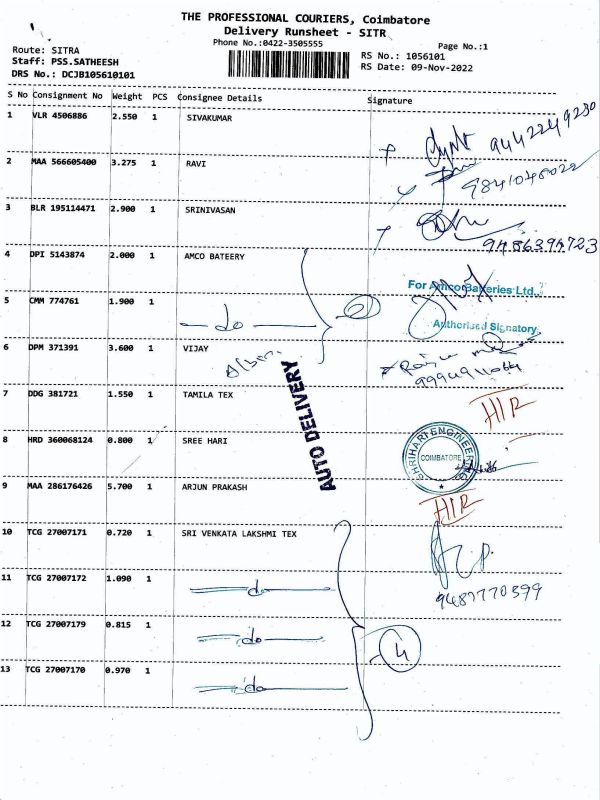 THE PROFESSIONAL COURIERS, Coimbatore
Delivery Runsheet - SITR
Phone No.:0422-3505555
Page No.:1
Route: SITRA
RS No.: 1056101
Staff: PSS.SATHEESH
RS Date: 09-Nov-2022
DRS No.: DCJB105610101
S No Consignment No Weight PCS Consignee Details Signature
1 VLR 4506886 2.550 1 SIVAKUMAR
9442249280
2 MAA 566605400 3.275 1 RAVI
9841046022
3 BLR 195114471 2.900 1 SRINIVASAN
9486394723
4 DPI 5143874 2.000 1 AMCO BATEERY
For Amco Batteries Ltd.,
5 CMM 774761 1.900 1 do 2
Authorised Signatory
6 DPM 371391 3.600 1 VIJAY
AUTO DELIVERY
7 DDG 381721 1.550 1 TAMILA TEX
HIR
8 HRD 360068124 0.800 1 SREE HARI
SHRIHARI ENGINEERING
COIMBATORE
9 MAA 286176426 5.700 1 ARJUN PRAKASH
HIR
10 TCG 27007171 0.720 1 SRI VENKATA LAKSHMI TEX
11 TCG 27007172 1.090 1 do
9487770599
12 TCG 27007179 0.815 1 do
4
13 TCG 27007170 0.970 1 do